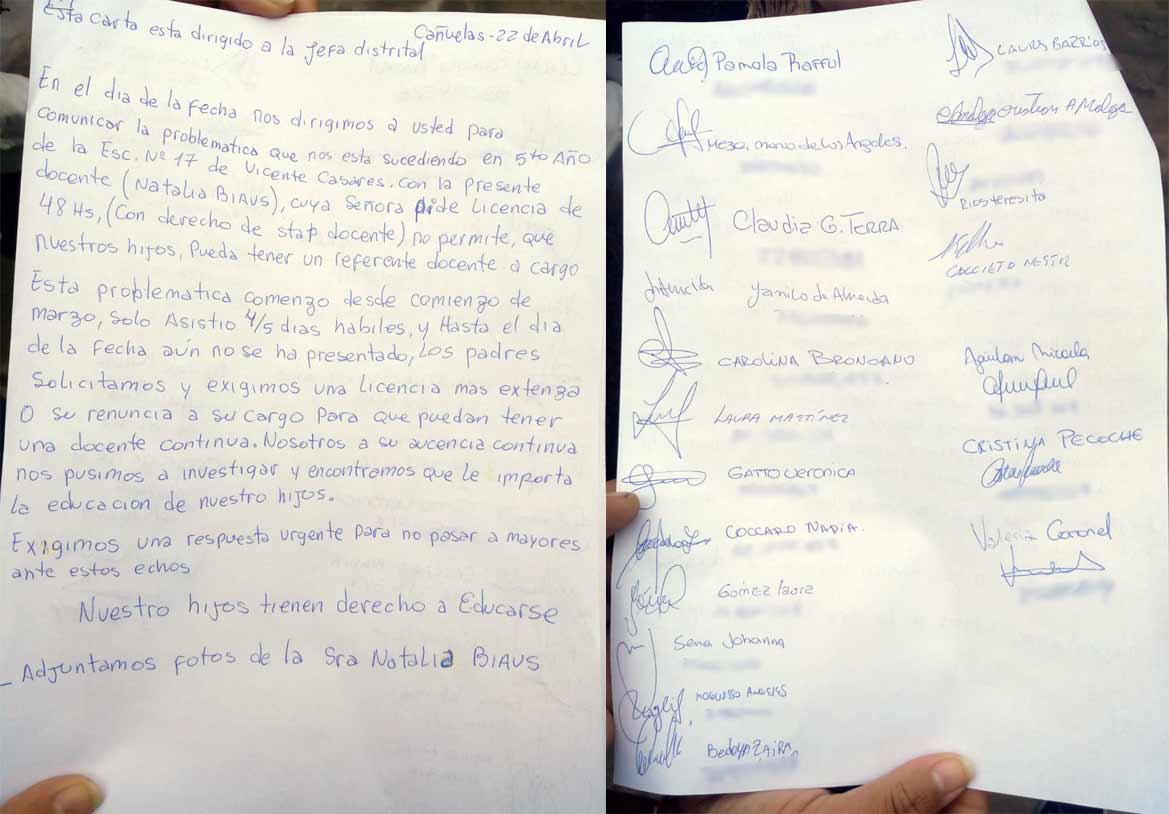 Esta carta esta dirigido a la Jefa distrital
Cañuelas - 22 de Abril
En el dia de la fecha nos dirigimos a usted para
comunicar la problematica que nos esta sucediendo en 5to Año
de la Esc. Nº 17 de Vicente Casares. con la presente
docente (Natalia BIAUS), cuya Señora pide Licencia de
48 Hs, (Con derecho de stap docente) no permite, que
nuestros hijos, Pueda tener un referente docente a cargo
Esta problematica comenzo desde comienzo de
marzo, Solo Asistio 4/5 dias habiles, y Hasta el dia
de la Fecha aún no se ha presentado, Los padres
Solicitamos y exigimos una licencia mas extenza
O su renuncia a su cargo Para que puedan tener
una docente continua. Nosotros a su aucencia continua
nos pusimos a investigar y encontramos que le importa
la educacion de nuestro hijos.
Exigimos una respuesta urgente para no pasar a mayores
ante estos echos
Nuestro hijos tienen derecho a Educarse
_ Adjuntamos fotos de la Sra Natalia BIAUS
Pamela Rafful
Meza, maria de los Angeles.
Claudia G. TERRA
Yamila de Almeida
CAROLINA BRONGANO
LAURA MARTÍNEZ
GATTO VERONICA
COCCARO NADIA.
Gómez
Sena Johanna
ANGELES
Bedoya ZAIRA
LAURA BARRIOS
cristian A Malaga
Rios teresita
NESTR
Aguilar Micaela
CRISTINA PECOCHE
Valeria Coronel